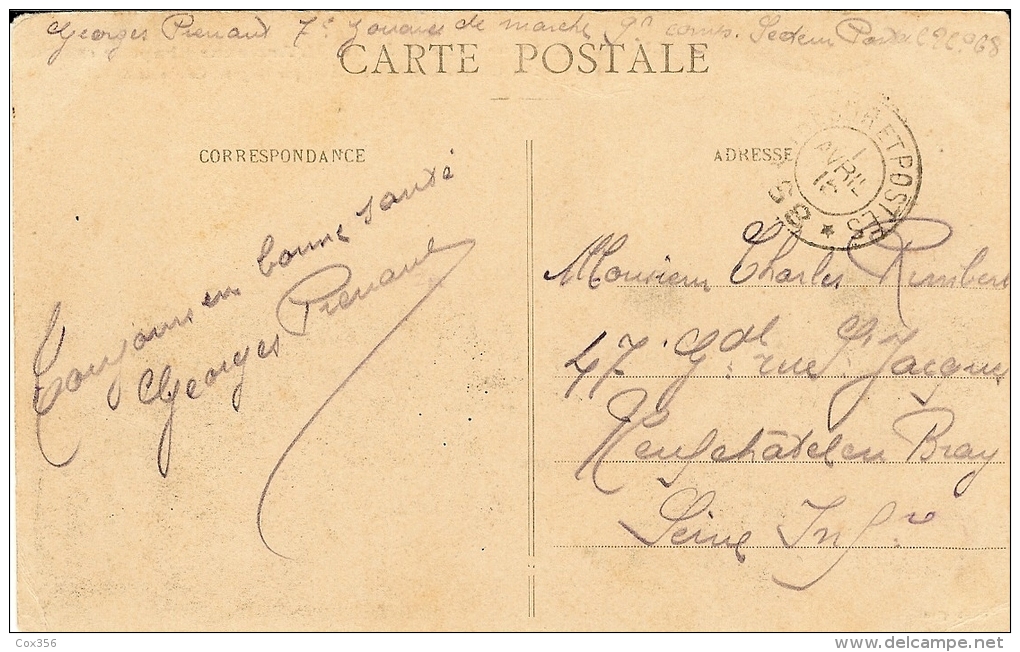 Georges Prenant 7e Zouaves de marche 9e comp. Secteur Postal No 68
CARTE POSTALE
CORRESPONDANCE
ADRESSE
TRESOR ET POSTES
1
AVRIL
15
* 68 *
Toujours en bonne santé
Georges Prenant
Monsieur Charles Rimbert
47 Gde rue St Jacques
Neufchâtel en Bray
Seine Infre
Cox356
www.delcampe.net